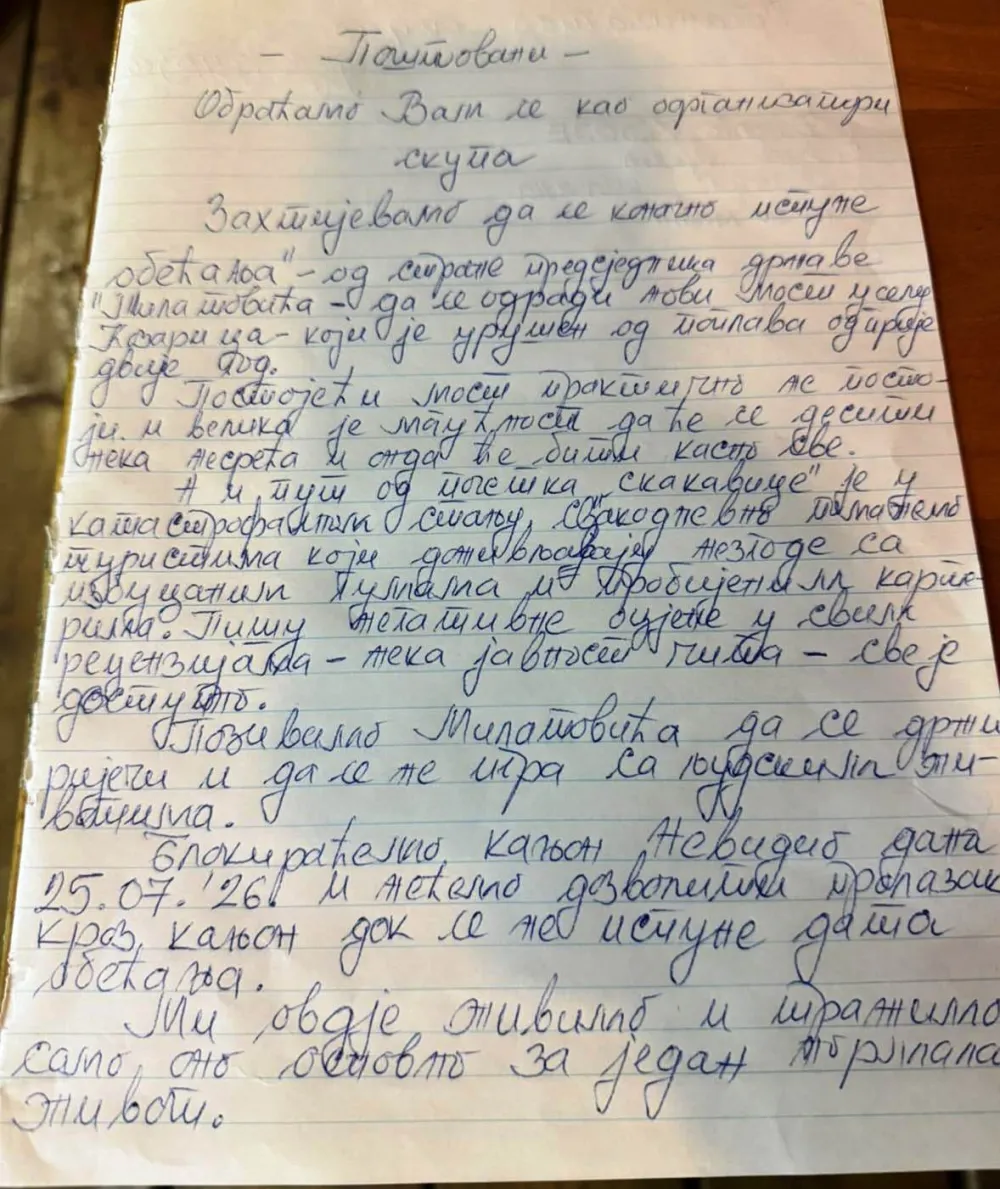 - Поштовани -
Обраћамо Вам се као одрганизатири
скупа
Захтијевамо да се коначно испуне
обећања" - од стране предсједника државе
"Милатовића - да се одради нови мост у селу
Пожарица - који је урушен од поплава од прије
двије год.
Постојећи мост практично не посто-
ји и велика је могућност да ће се десити
нека несрећа и онда ће бити касно све.
А и пут од почетка „скакавице" је у
катастрофалном стању, свакодневно помажемо
туристима који доживљавају незгоде са
избушеним гумама и пробијеним карте-
рима. Пишу негативне оцјене у својим
рецензијама - нека јавност чита - све је
доступно.
Позивамо Милатовића да се држи
ријечи и да се не игра са људским жи-
вотима.
Блокираћемо кањон Невидио дана
25.07.'26. и нећемо дозволити пролазак
кроз кањон док се не испуне дата
обећања.
Ми овдје живимо и тражимо
само оно основно за један нормалан
живот.